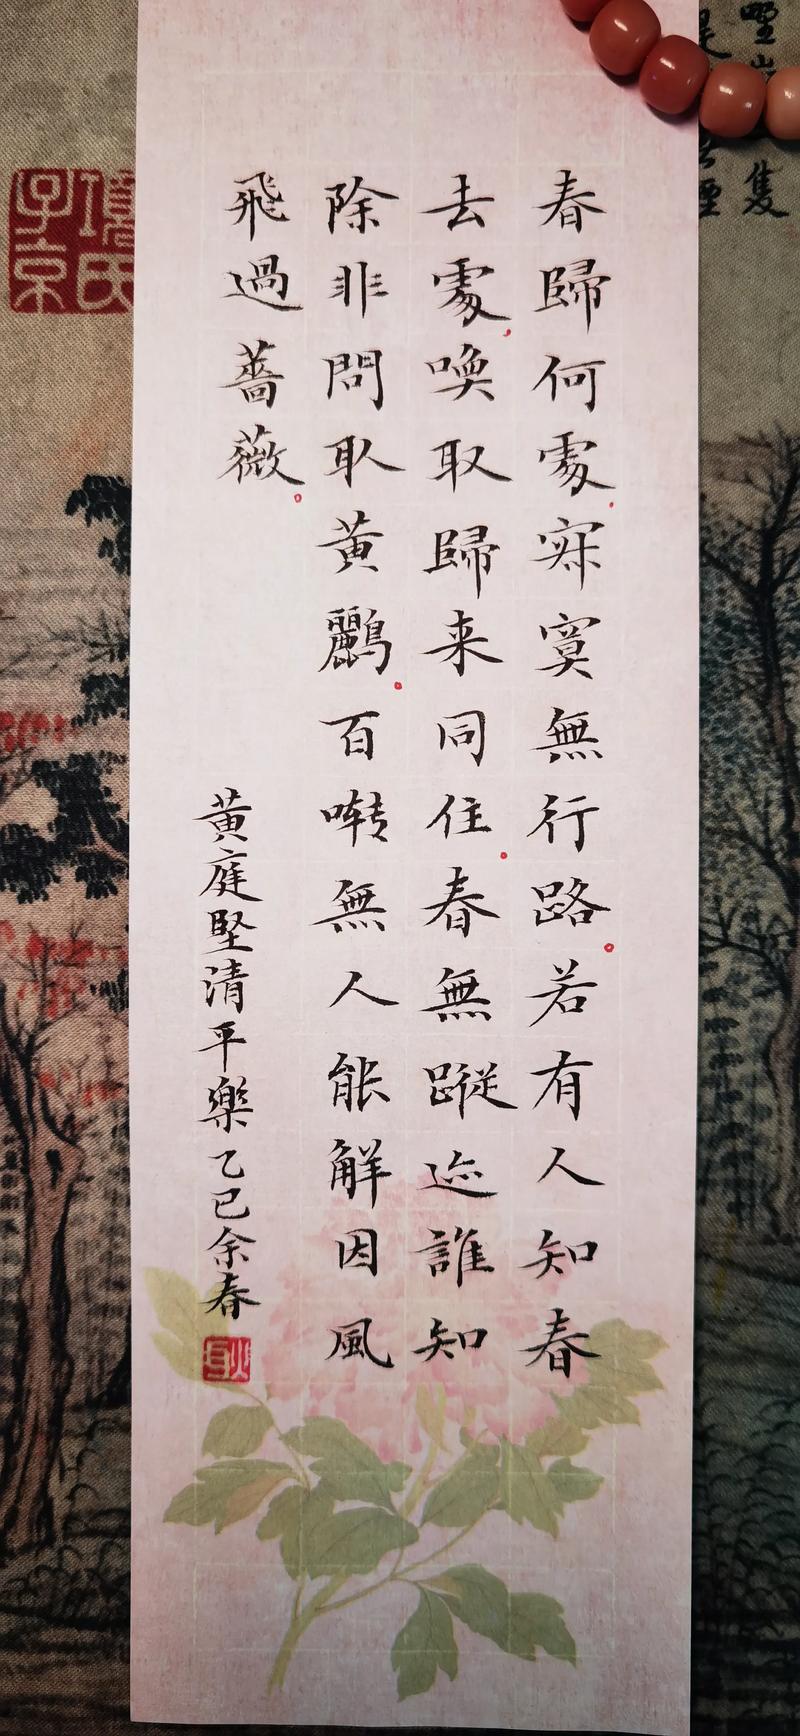 春歸何處、寂寞無行路。若有人知春
去處、喚取歸来同住。春無蹤迹誰知
除非問取黄鸝。百囀無人能解因風
飛過薔薇。
黄庭堅清平樂乙巳余春
耿
項氏子京
隻